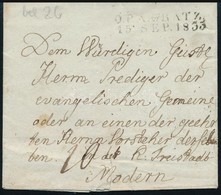 bei 26
O:P:A:GRATZ.
15. SEP. 1833
Dem Würdigen Geistl
Herrn Prediger der
evangelischen Gemeine
oder an einen der geehr
ten Herrn Vorsteher dersel
ben. in der K. Freistadt
Modern